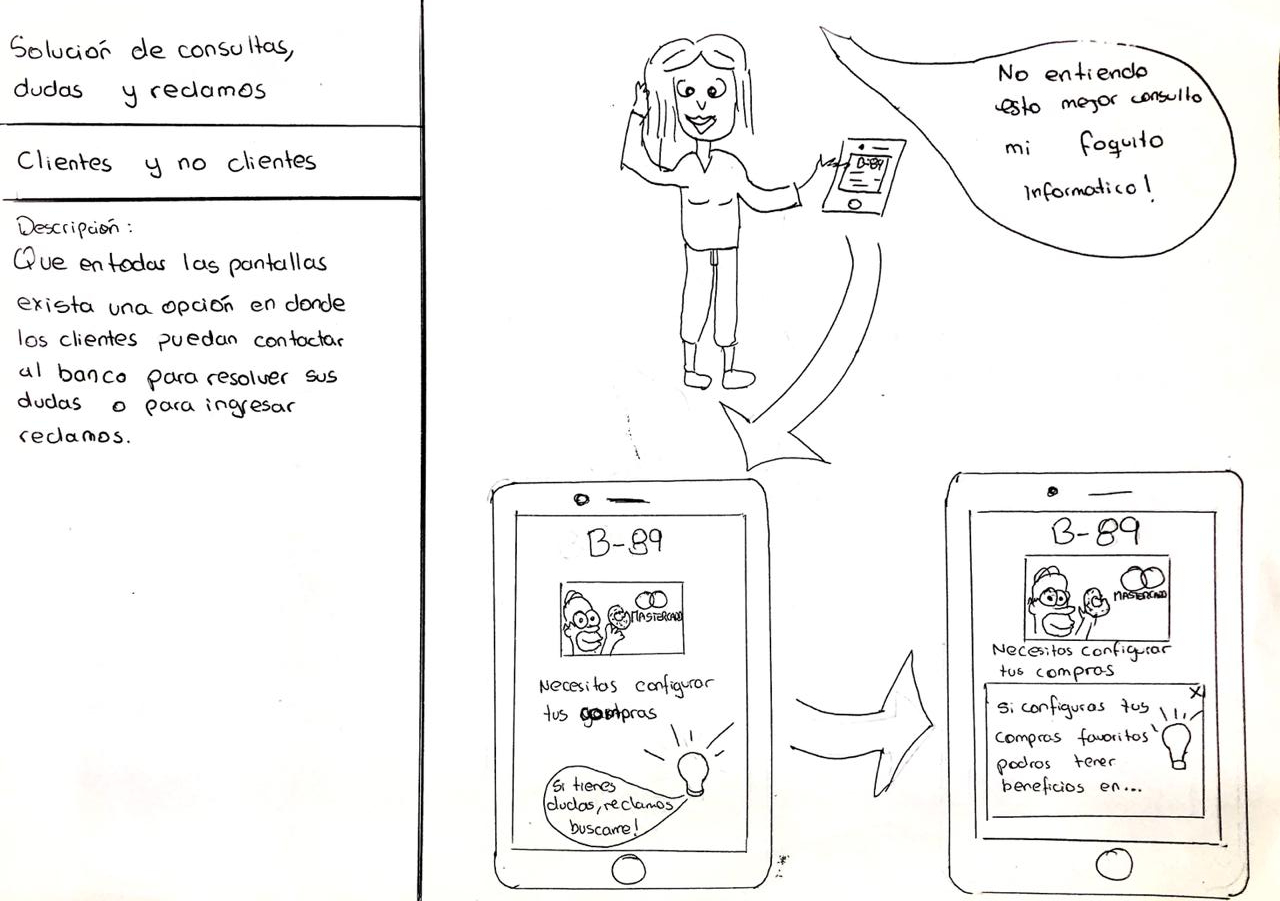 Solución de consultas,
dudas y reclamos
Clientes y no clientes
Descripción:
Que en todas las pantallas
exista una opción en donde
los clientes puedan contactar
al banco para resolver sus
dudas o para ingresar
reclamos.
No entiendo
esto mejor consulto
mi foquito
informatico!
B-89
B-89
MASTERCARD
Necesitas configurar
tus compras
Si tienes
dudas, reclamos
buscame!
B-89
MASTERCARD
Necesitas configurar
tus compras
X
Si configuras tus
compras favoritos
podras tener
beneficios en...